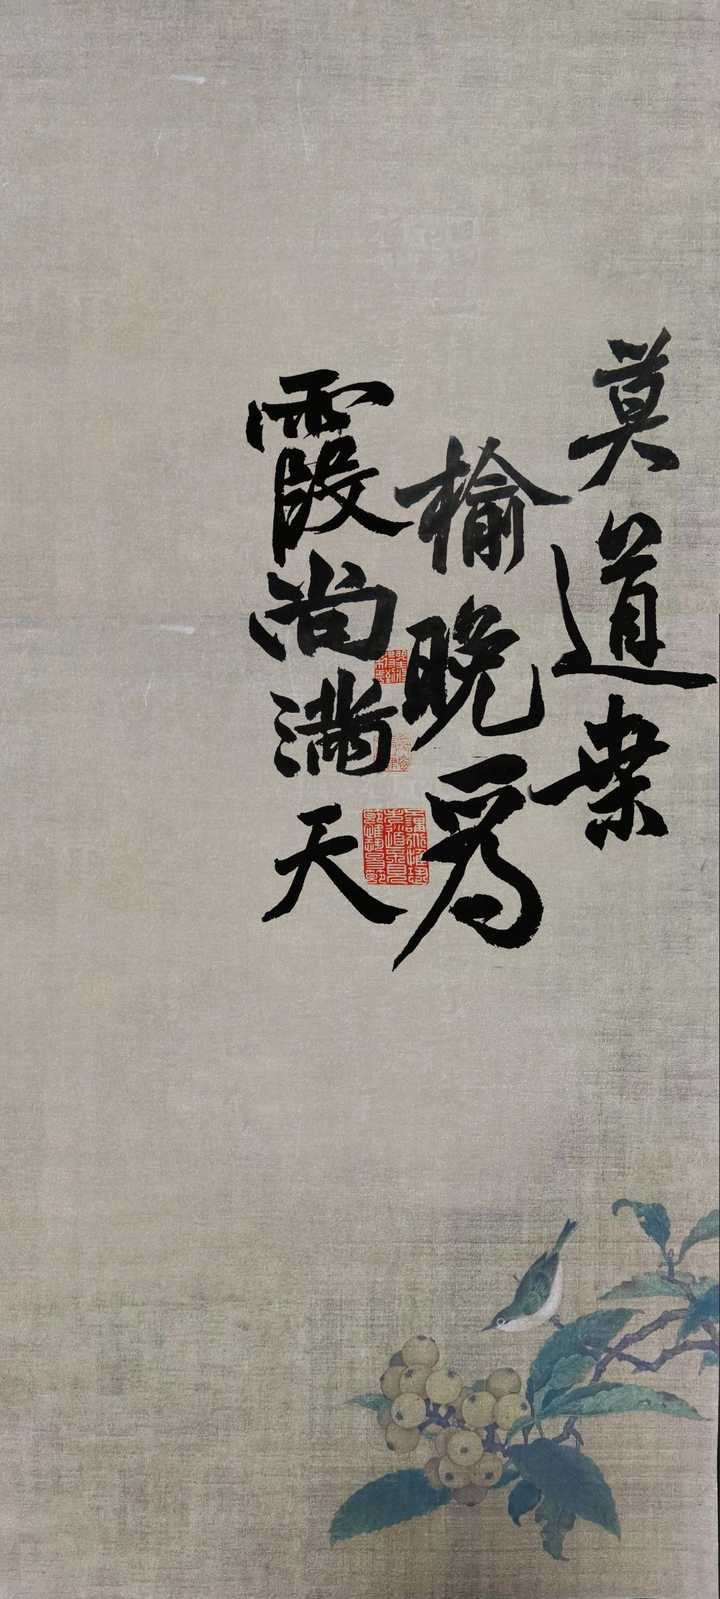 莫道桑
榆晚爲
霞尚满天